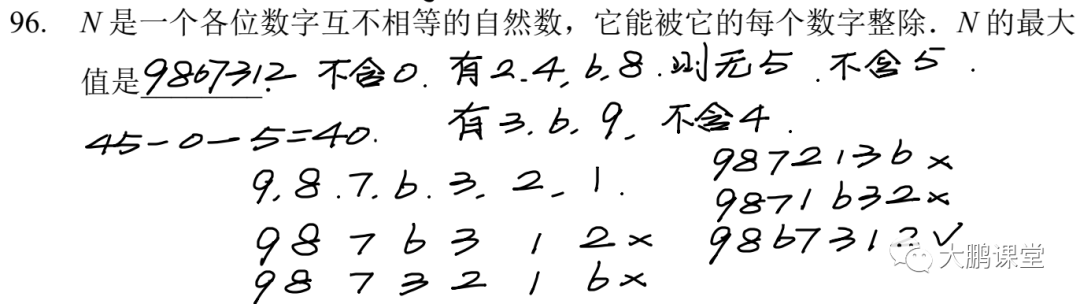 96. N是一个各位数字互不相等的自然数，它能被它的每个数字整除．N的最大
值是9867312. 不含0. 有2.4,6,8.则无5.不含5.
45-0-5=40. 有3.6.9, 不含4.
9.8.7.6.3.2.1.
9872136×
9871632×
9876312×
9867312✓
9873216×
大鹏课堂